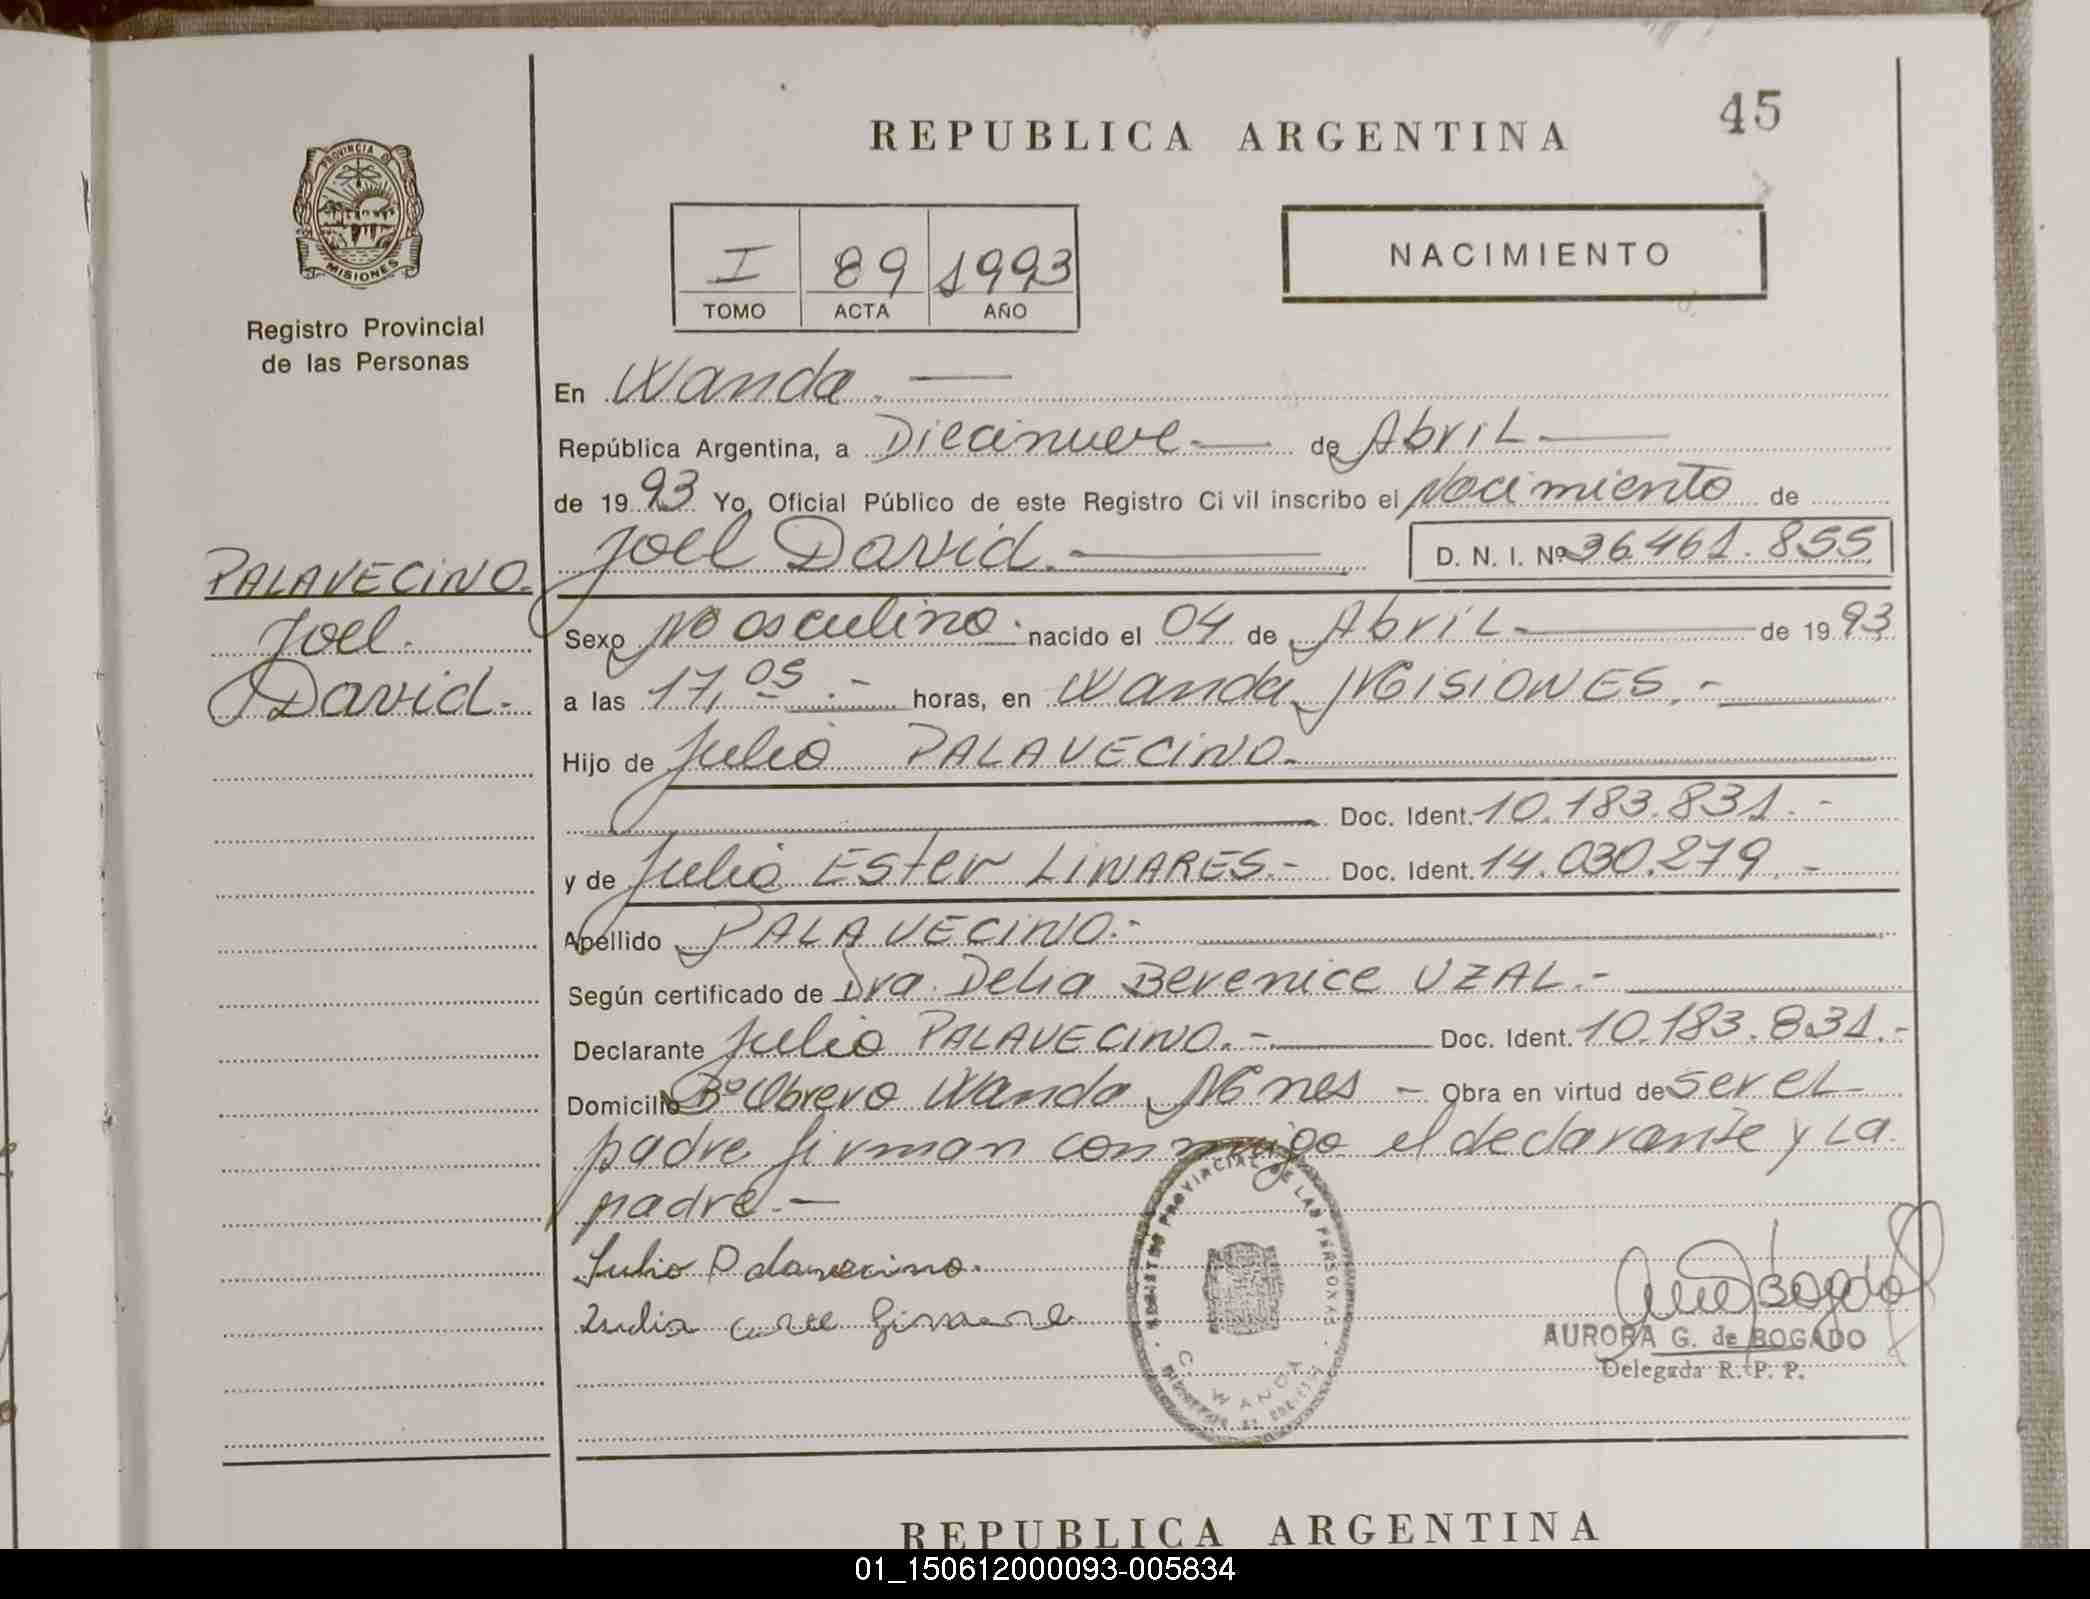 45
REPUBLICA ARGENTINA
PROVINCIA DE
MISIONES
Registro Provincial
de las Personas
I 89 1993
TOMO ACTA AÑO
NACIMIENTO
En Wanda.
República Argentina, a Diecinueve de Abril
de 1993 Yo, Oficial Público de este Registro Civil inscribo el Nacimiento de
Joel David. D. N. I. Nº 36.461.855
PALAVECINO.
Joel.
David.
Sexo Masculino. nacido el 04 de Abril de 1993
a las 17,05.- horas, en Wanda, MISIONES.-
Hijo de Julio PALAVECINO.
Doc. Ident. 10.183.831.-
y de Julia Ester LINARES.- Doc. Ident. 14.030.279.-
Apellido PALAVECINO.-
Según certificado de Dra. Delia Berenice UZAL.-
Declarante Julio PALAVECINO.- Doc. Ident. 10.183.831.-
Domicilio Bº Obrero Wanda Mnes - Obra en virtud de ser el
padre firman conmigo el declarante y la
madre.-
Julio Palavecino.
Julia
REGISTRO PROVINCIAL DE LAS PERSONAS
WANDA
AURORA G. de BOGADO
Delegada R. P. P.
REPUBLICA ARGENTINA
01_150612000093-005834